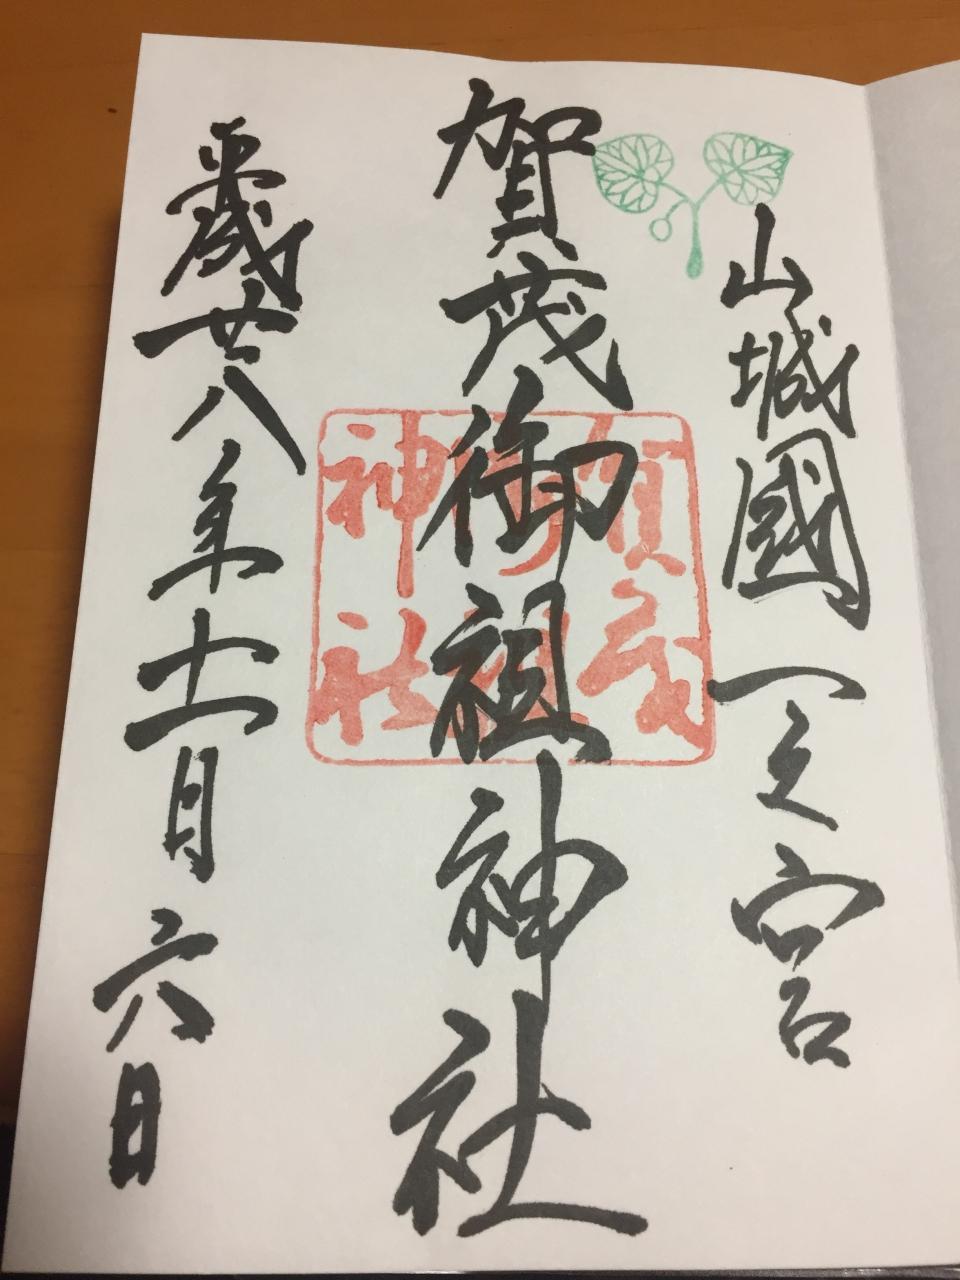 山城國一之宮
賀茂御祖神社
平成廿八年十一月六日
賀茂
御祖
神社